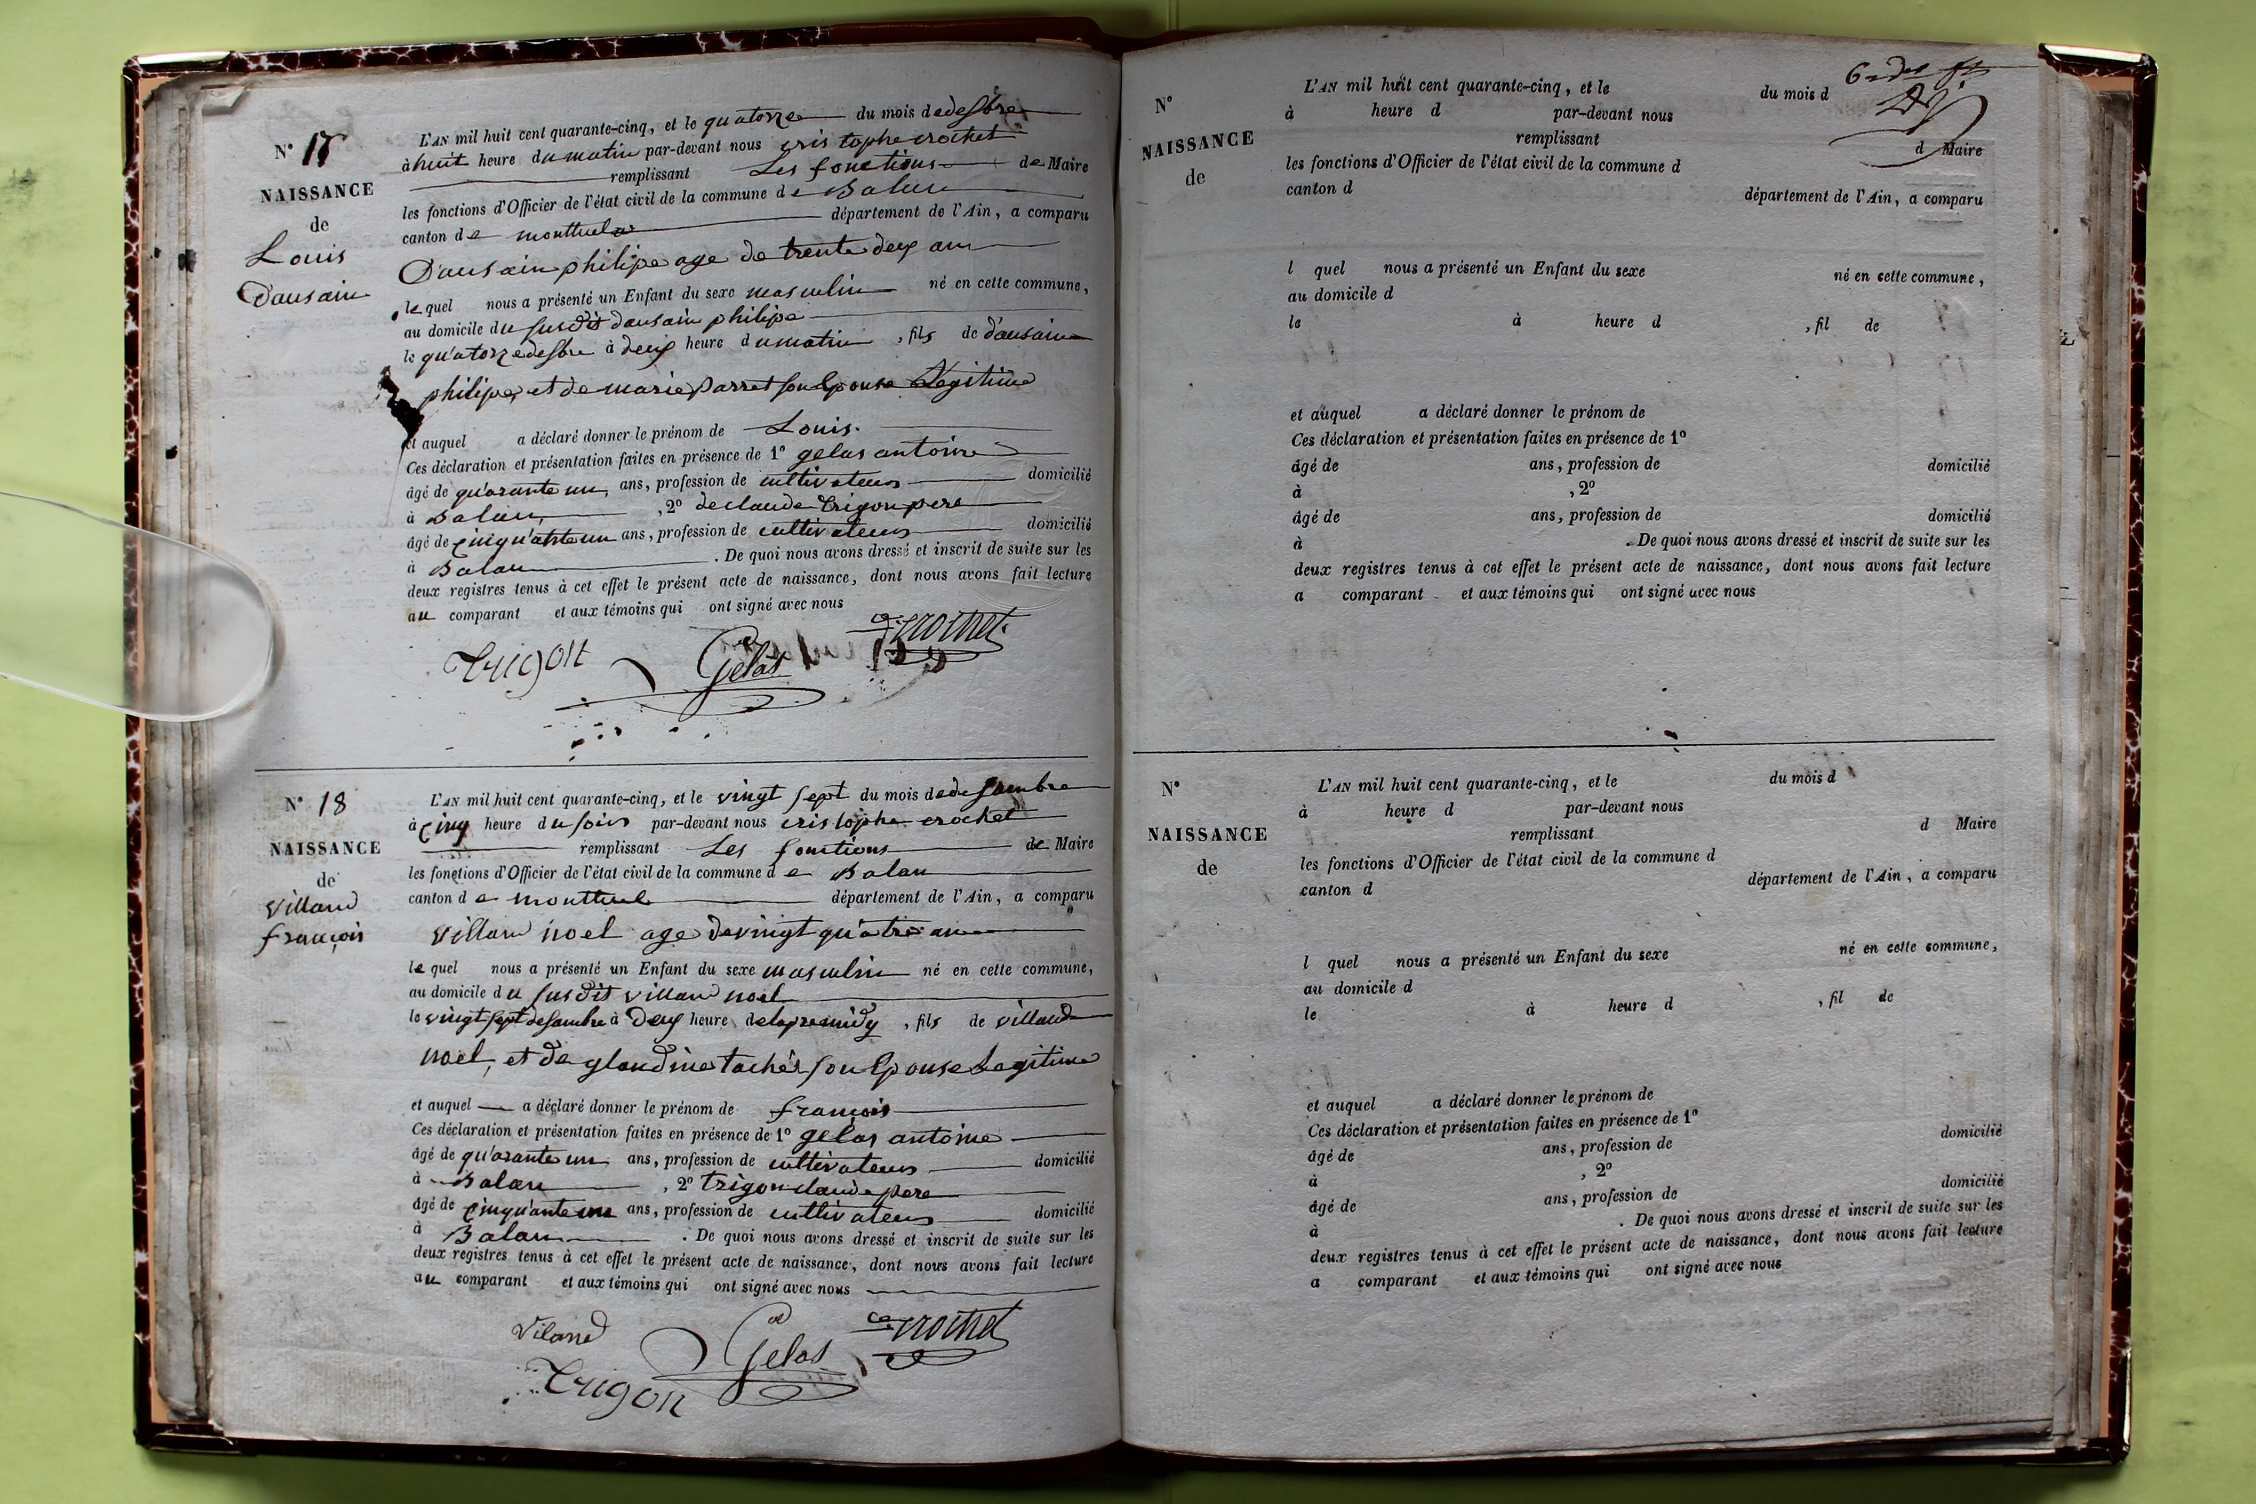 N° 17
NAISSANCE
de
Louis
Dausain
L'AN mil huit cent quarante-cinq, et le quatorze du mois de desbre
à huit heure du matin par-devant nous cristophe crochet
remplissant Les fonctions de Maire
les fonctions d'Officier de l'état civil de la commune de Balan
canton de montluel département de l'Ain, a comparu
Dausain philipe age de trente deux ans
lequel nous a présenté un Enfant du sexe masculin né en cette commune,
au domicile du susdit dausain philipe
le quatorze desbre à deux heure du matin, fils de dausain
philipe, et de marie Parret son Epouse Legitime
et auquel a déclaré donner le prénom de Louis.
Ces déclaration et présentation faites en présence de 1° gelas antoine
âgé de quarante un ans, profession de cultivateur domicilié
à Balan, 2° de claude trigon pere
âgé de cinquante un ans, profession de cultivateur domicilié
à Balan. De quoi nous avons dressé et inscrit de suite sur les
deux registres tenus à cet effet le présent acte de naissance, dont nous avons fait lecture
au comparant et aux témoins qui ont signé avec nous
Trigon Gelas crochet
N° 18
NAISSANCE
de
villand
françois
L'AN mil huit cent quarante-cinq, et le vingt sept du mois de desambre
à cinq heure du soir par-devant nous cristophe crochet
remplissant Les fonctions de Maire
les fonctions d'Officier de l'état civil de la commune de Balan
canton de montluel département de l'Ain, a comparu
villand noel age de vingt quatre ans
lequel nous a présenté un Enfant du sexe masculin né en cette commune,
au domicile du susdit villand noel
le vingt sept desambre à deux heure de lapremidy, fils de villand
noel, et de glaudine tachet son Epouse Legitime
et auquel a déclaré donner le prénom de françois
Ces déclaration et présentation faites en présence de 1° gelas antoine
âgé de quarante un ans, profession de cultivateur domicilié
à Balan, 2° trigon claude pere
âgé de cinquante un ans, profession de cultivateur domicilié
à Balan. De quoi nous avons dressé et inscrit de suite sur les
deux registres tenus à cet effet le présent acte de naissance, dont nous avons fait lecture
au comparant et aux témoins qui ont signé avec nous
Viland Gelas ce crochet
Trigon
N°
NAISSANCE
de
L'AN mil huit cent quarante-cinq, et le du mois d
à heure d par-devant nous
remplissant d Maire
les fonctions d'Officier de l'état civil de la commune d
canton d département de l'Ain, a comparu
l quel nous a présenté un Enfant du sexe né en cette commune,
au domicile d
le à heure d, fil de
et auquel a déclaré donner le prénom de
Ces déclaration et présentation faites en présence de 1°
âgé de ans, profession de domicilié
à, 2°
âgé de ans, profession de domicilié
à. De quoi nous avons dressé et inscrit de suite sur les
deux registres tenus à cet effet le présent acte de naissance, dont nous avons fait lecture
a comparant et aux témoins qui ont signé avec nous
N°
NAISSANCE
de
L'AN mil huit cent quarante-cinq, et le du mois d
à heure d par-devant nous
remplissant d Maire
les fonctions d'Officier de l'état civil de la commune d
canton d département de l'Ain, a comparu
l quel nous a présenté un Enfant du sexe né en cette commune,
au domicile d
le à heure d, fil de
et auquel a déclaré donner le prénom de
Ces déclaration et présentation faites en présence de 1°
âgé de ans, profession de domicilié
à, 2°
âgé de ans, profession de domicilié
à. De quoi nous avons dressé et inscrit de suite sur les
deux registres tenus à cet effet le présent acte de naissance, dont nous avons fait lecture
a comparant et aux témoins qui ont signé avec nous